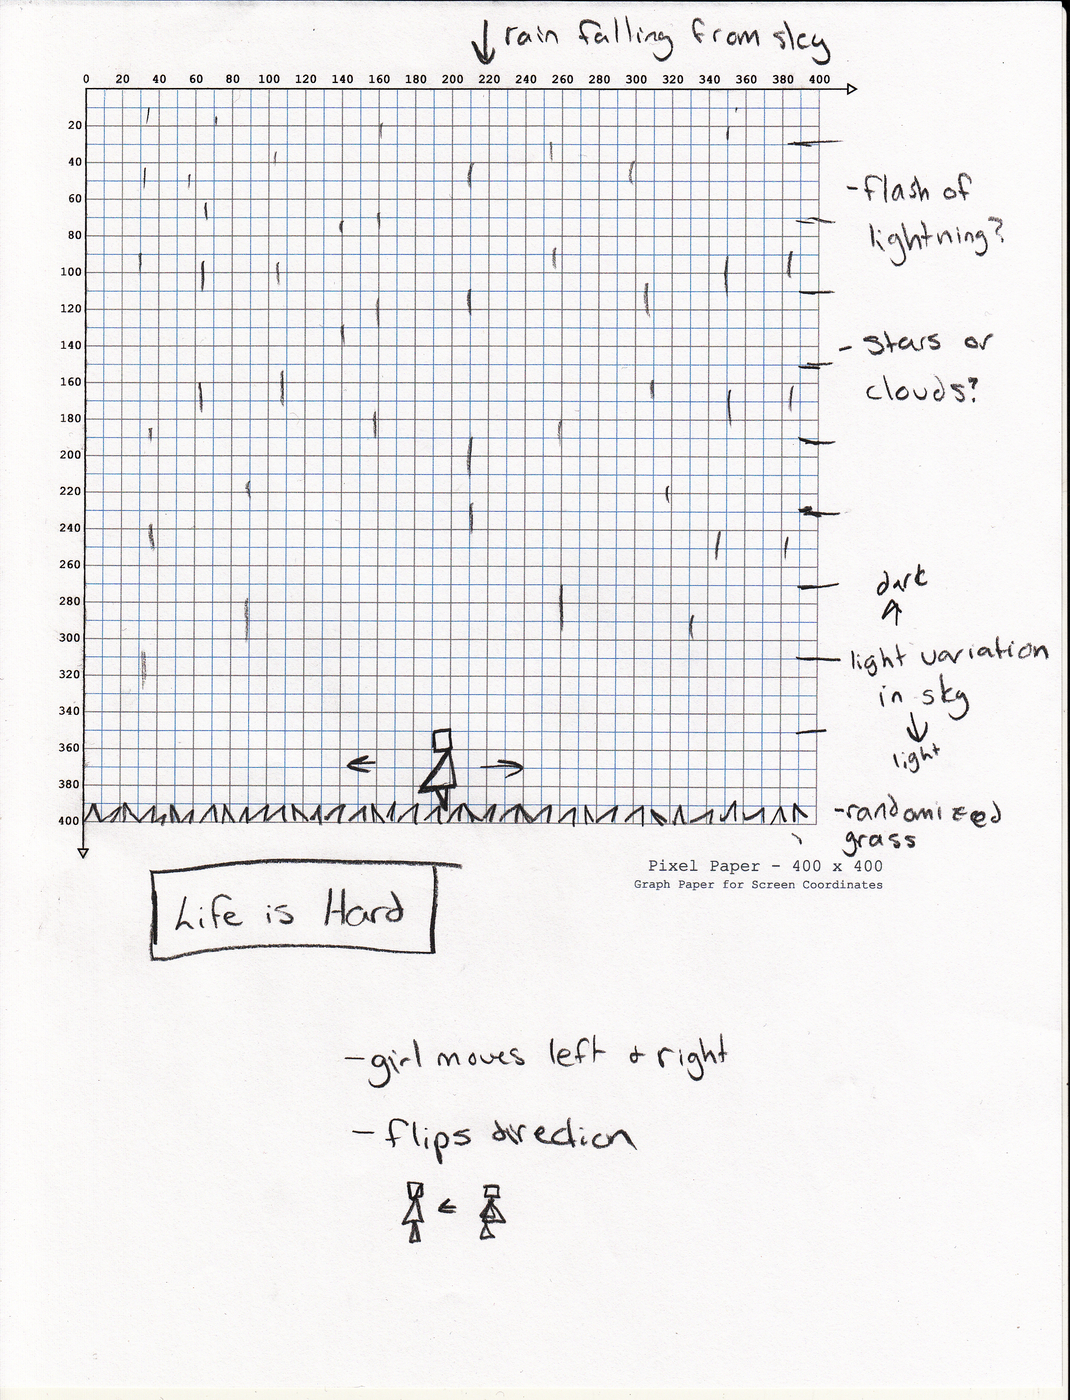 ↓ rain falling from sky
0 20 40 60 80 100 120 140 160 180 200 220 240 260 280 300 320 340 360 380 400
20
40
60
80
100
120
140
160
180
200
220
240
260
280
300
320
340
360
380
400
- flash of
lightning?
- Stars or
clouds?
dark
↑
light variation
in sky
↓
light
- randomized
grass
Pixel Paper - 400 x 400
Graph Paper for Screen Coordinates
Life is Hard
- girl moves left & right
- flips direction